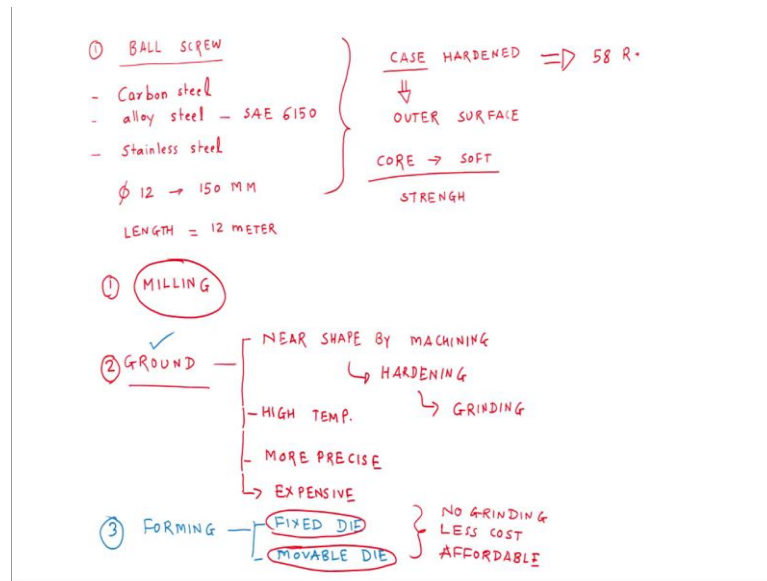 ① BALL SCREW
- Carbon steel
- alloy steel - SAE 6150
- Stainless steel
ϕ 12 → 150 MM
LENGTH = 12 METER
CASE HARDENED ⇒ 58 R.
⇓
OUTER SURFACE
CORE → SOFT
STRENGH
① MILLING
② GROUND
- NEAR SHAPE BY MACHINING
↳ HARDENING
↳ GRINDING
- HIGH TEMP.
- MORE PRECISE
↳ EXPENSIVE
③ FORMING
- FIXED DIE
- MOVABLE DIE
NO GRINDING
LESS COST
AFFORDABLE